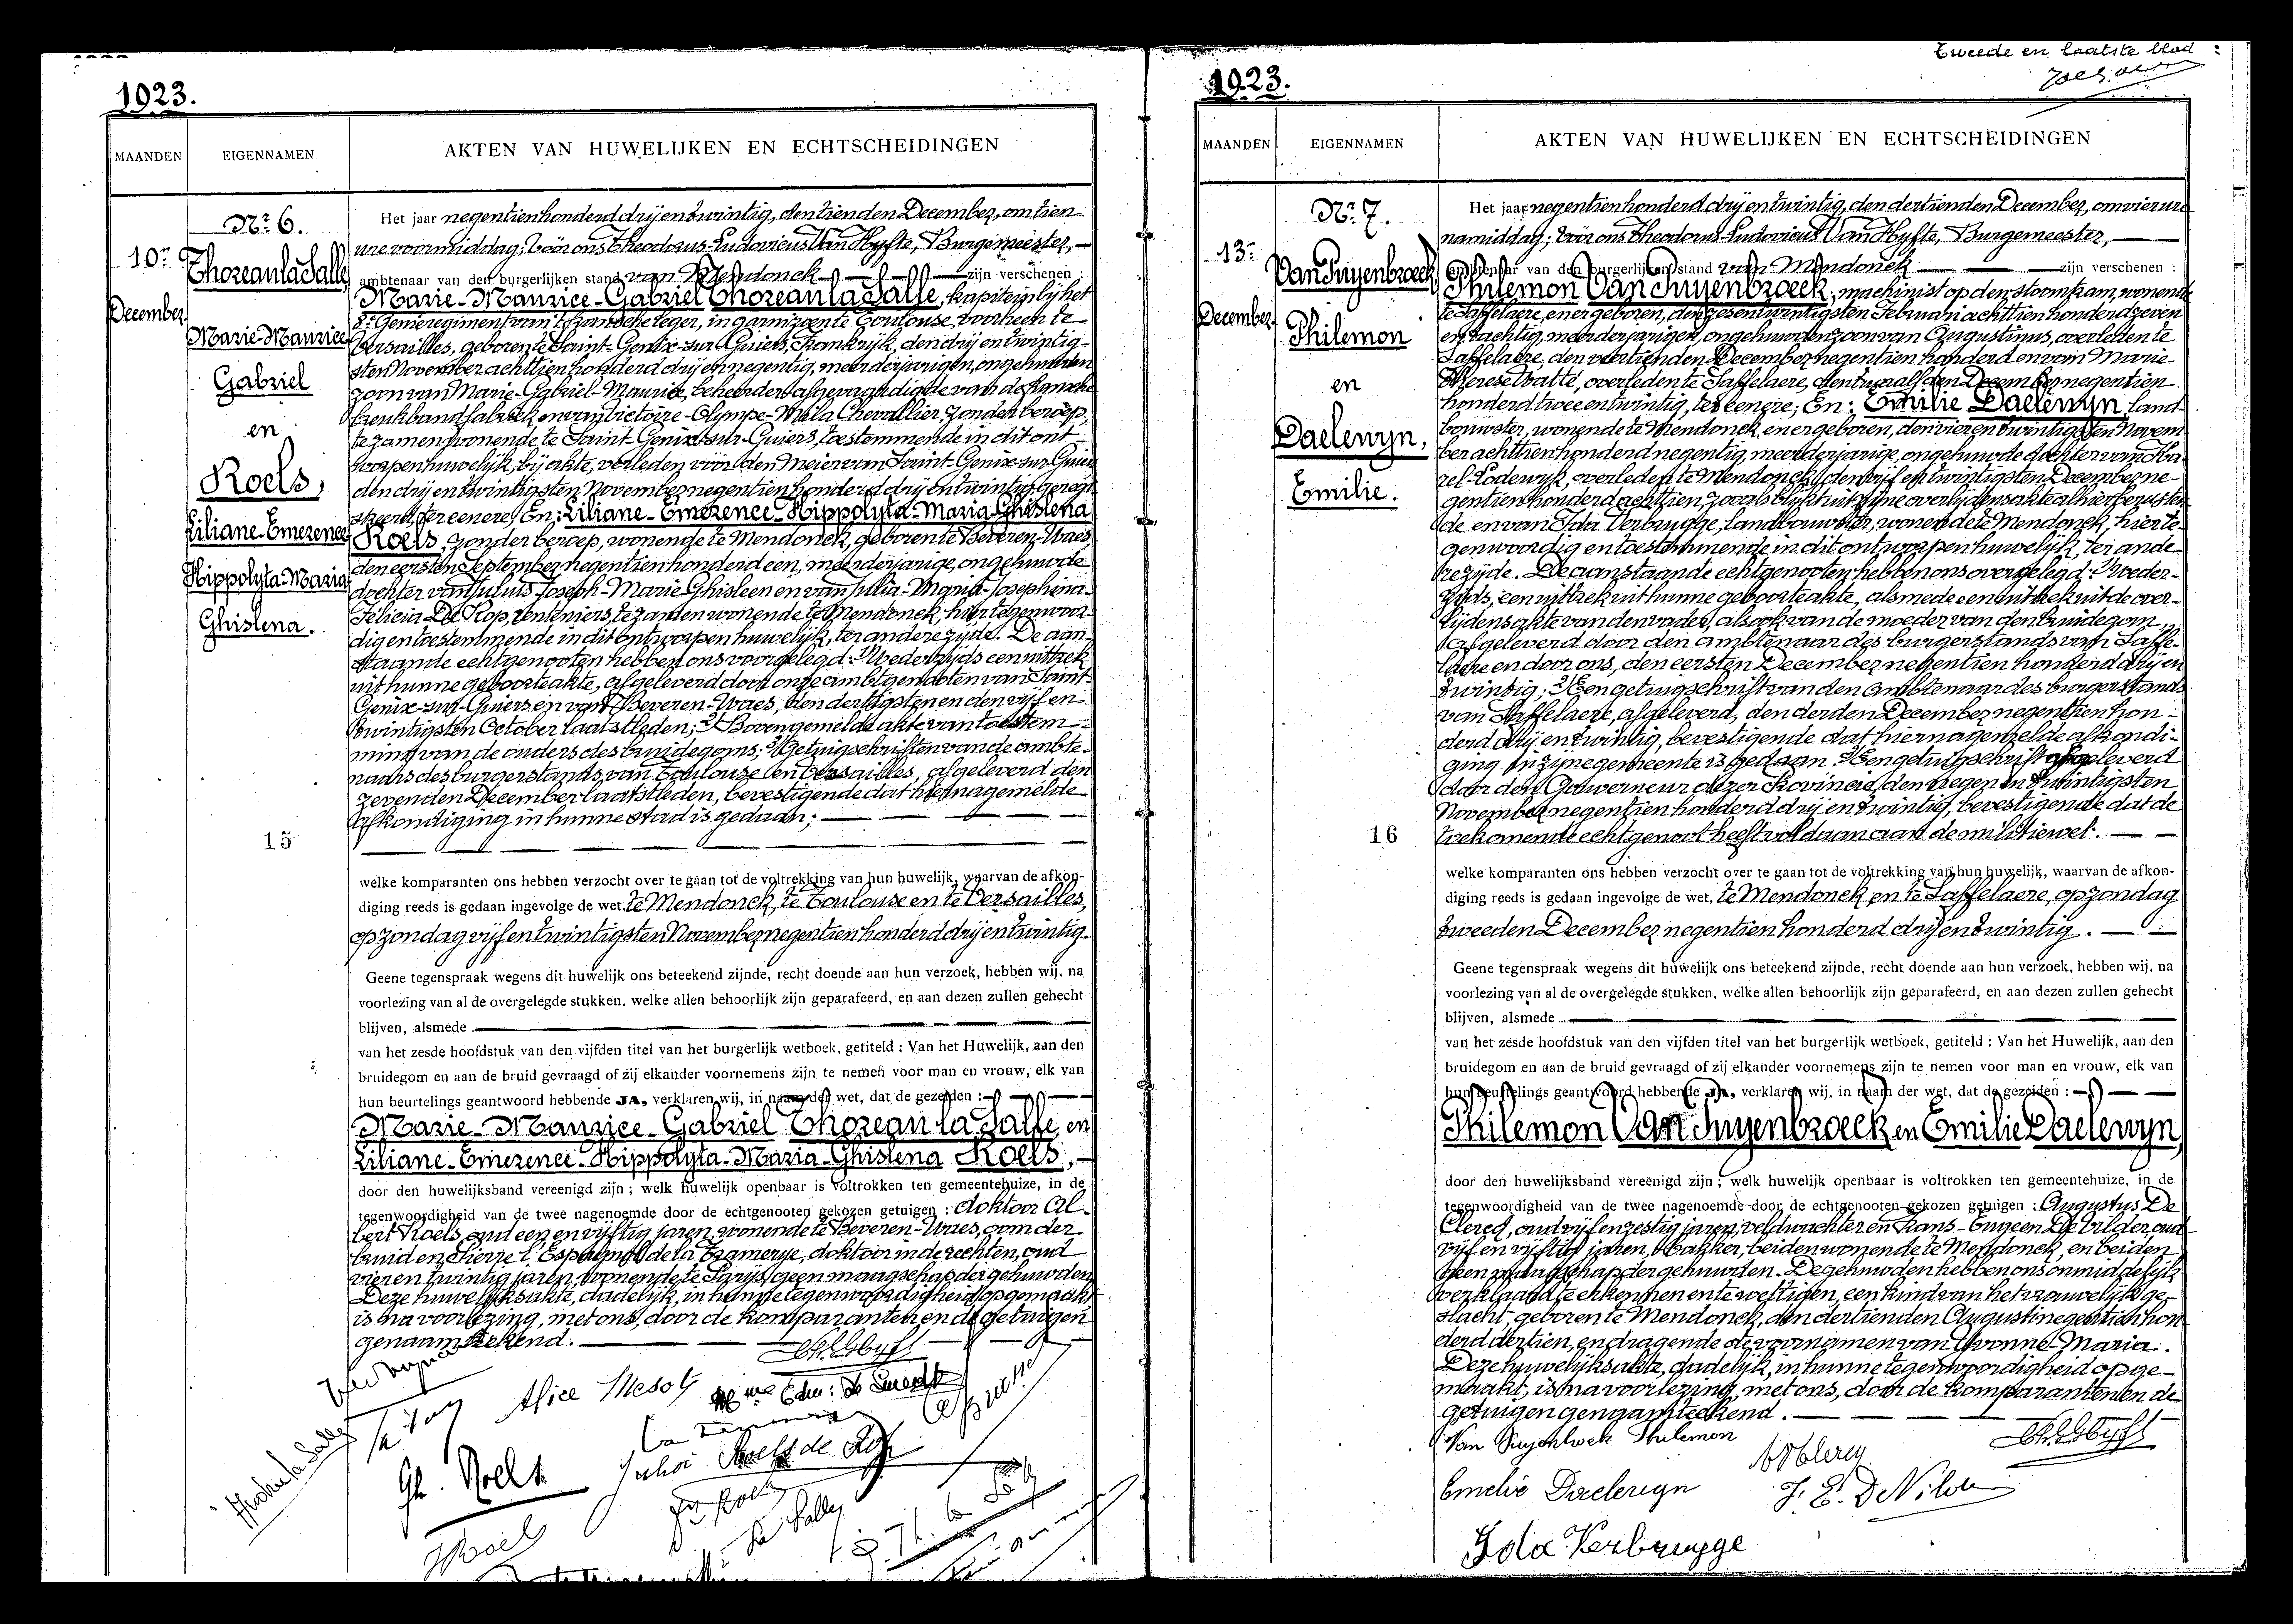 1923.
MAANDEN
EIGENNAMEN
AKTEN VAN HUWELIJKEN EN ECHTSCHEIDINGEN
Nr 6.
10en
December
Thoreau la Salle,
Marie-Maurice
Gabriel
en
Roels,
Liliane-Emerence
Hippolyta-Maria
Ghislena.
15
Het jaar negentienhonderd drij en twintig, den tienden December, om tien
ure voormiddag; vóór ons Theodorus-Ludovicus Van Hyfte, Burgemeester,
ambtenaar van den burgerlijken stand van Mendonck zijn verschenen :
Marie-Maurice-Gabriel Thoreau la Salle, kapitein bij het
8e Genieregiment van 't fransche leger, in garnizoen te Toulouse, voorheen te
Versailles, geboren te Saint-Genix-sur-Guiers, Frankrijk, den drij en twintig-
sten November achttien honderd drij en negentig, meerderjarigen, ongehuwden
zoon van Marie-Gabriel-Maurice, beheerder afgevaardigde van de fransche
breukbandfabriek en van Victoire-Olympe-Méla Chevallier, zonder beroep,
te zamen wonende te Saint-Genix-sur-Guiers, toestemmende in dit ont-
worpen huwelijk, bij akte, verleden vóór den Meier van Saint-Genix-sur-Guiers
den drij en twintigsten November negentien honderd drij en twintig geregi-
streerd, ter eenere; En: Liliane-Emerence-Hippolyta-Maria-Ghislena
Roels, zonder beroep, wonende te Mendonck, geboren te Beveren-Waes
den eersten September negentien honderd een, meerderjarige, ongehuwde
dochter van Juluis-Joseph-Marie-Ghisleen en van Julia-Maria-Josephina-
Felicia De Kop, renteniers, te zamen wonende te Mendonck, hier tegenwoor-
dig en toestemmende in dit ontworpen huwelijk, ter andere zijde. De aan-
staande echtgenooten hebben ons voorgelegd: 1/ Wederzijds een uittrek
uit hunne geboorteakte, afgeleverd door onze ambtgenooten van Saint-
Genix-sur-Guiers en van Beveren-Waes, den dertigsten en den vijf en
twintigsten October laatstleden; 2/ Bovengemelde akte van toestem-
ming van de ouders des bruidegoms; 3/ Getuigschriften van de ambte-
naars des burgerstands van Toulouze en Versailles, afgeleverd den
zevenden December laatstleden, bevestigende dat hiernagemelde
afkondiging in hunne stad is gedaan;
welke komparanten ons hebben verzocht over te gaan tot de voltrekking van hun huwelijk, waarvan de afkon-
diging reeds is gedaan ingevolge de wet, te Mendonck, te Toulouse en te Versailles,
op zondag vijf en twintigsten November negentien honderd drij en twintig.
Geene tegenspraak wegens dit huwelijk ons beteekend zijnde, recht doende aan hun verzoek, hebben wij, na
voorlezing van al de overgelegde stukken. welke allen behoorlijk zijn geparafeerd, en aan dezen zullen gehecht
blijven, alsmede
van het zesde hoofdstuk van den vijfden titel van het burgerlijk wetboek, getiteld : Van het Huwelijk, aan den
bruidegom en aan de bruid gevraagd of zij elkander voornemens zijn te nemen voor man en vrouw, elk van
hun beurtelings geantwoord hebbende JA, verklaren wij, in naam der wet, dat de gezeiden :
Marie-Maurice-Gabriel Thoreau la Salle, en
Liliane-Emerence-Hippolyta-Maria-Ghislena Roels,
door den huwelijksband vereenigd zijn ; welk huwelijk openbaar is voltrokken ten gemeentehuize, in de
tegenwoordigheid van de twee nagenoemde door de echtgenooten gekozen getuigen : doktoor Al-
bert Roels, oud een en vijftig jaren, wonende te Beveren-Waes, oom der
bruid en Pierre l'Espagnol de la Tramerye, doktoor in de rechten, oud
vier en twintig jaren, wonende te Parijs, geen maagschap der gehuwden
Deze huwelijksakte, dadelijk, in hunne tegenwoordigheid opgemaakt
is na voorlezing, met ons, door de komparanten en de getuigen
genaamteekend.
Alice Mesot
Gh. Roels
Roels de Kop
Tweede en laatste blad
1923.
MAANDEN
EIGENNAMEN
AKTEN VAN HUWELIJKEN EN ECHTSCHEIDINGEN
Nr 7.
13en
December
Van Puyenbroeck
Philemon
en
Daelewyn,
Emilie.
16
Het jaar negentien honderd drij en twintig, den dertienden December, om vier ure
namiddag; vóór ons Theodorus-Ludovicus Van Hyfte, Burgemeester,
ambtenaar van den burgerlijken stand van Mendonck zijn verschenen :
Philemon Van Puyenbroeck, machinist op den stoomtram, wonende
te Saffelaere, en er geboren, den zesentwintigsten Februari achttien honderd zeven
en tachtig, meerderjarigen, ongehuwden zoon van Augustinus, overleden te
Saffelaere, den veertienden December negentien honderd en van Marie-
Therese Watté, overleden te Saffelaere, den twaalfden December negentien
honderd twee en twintig, ter eenere; En: Emilie Daelewyn, land-
bouwster, wonende te Mendonck, en er geboren, den vier en twintigsten Novem-
ber achttien honderd negentig, meerderjarige, ongehuwde dochter van Ka-
rel-Lodewijk, overleden te Mendonck, den vijf en twintigsten December ne-
gentien honderd achttien, zooals blijkt uit zijne overlijdensakte alhier berusten-
de en van Ida Verbrugge, landbouwster, wonende te Mendonck, hier te-
genwoordig en toestemmende in dit ontworpen huwelijk, ter ande-
re zijde. De aanstaande echtgenooten hebben ons overgelegd: 1/ Weder-
zijds, een uittrek uit hunne geboorteakte, alsmede een uittrek uit de over-
lijdensakte van den vader, alsook van de moeder van den bruidegom,
afgeleverd door den ambtenaar des burgerstands van Saffe-
laere en door ons, den eersten December negentien honderd drij en
twintig; 2/ Een getuigschrift van den ambtenaar des burgerstands
van Saffelaere, afgeleverd, den derden December negentien hon-
derd drij en twintig, bevestigende dat hiernagemelde afkondi-
ging in zijne gemeente is gedaan. 3/ Een getuigschrift afgeleverd
door den Gouverneur dezer Provincie, den negen en twintigsten
November negentien honderd drij en twintig, bevestigende dat de
toekomende echtgenoot heeft voldaan aan de militiewet.
welke komparanten ons hebben verzocht over te gaan tot de voltrekking van hun huwelijk, waarvan de afkon-
diging reeds is gedaan ingevolge de wet, te Mendonck en te Saffelaere, op zondag
tweeden December negentien honderd drij en twintig.
Geene tegenspraak wegens dit huwelijk ons beteekend zijnde, recht doende aan hun verzoek, hebben wij, na
voorlezing van al de overgelegde stukken, welke allen behoorlijk zijn geparafeerd, en aan dezen zullen gehecht
blijven, alsmede
van het zesde hoofdstuk van den vijfden titel van het burgerlijk wetboek, getiteld : Van het Huwelijk, aan den
bruidegom en aan de bruid gevraagd of zij elkander voornemens zijn te nemen voor man en vrouw, elk van
hun beurtelings geantwoord hebbende JA, verklaren wij, in naam der wet, dat de gezeiden :
Philemon Van Puyenbroeck en Emilie Daelewyn,
door den huwelijksband vereenigd zijn ; welk huwelijk openbaar is voltrokken ten gemeentehuize, in de
tegenwoordigheid van de twee nagenoemde door de echtgenooten gekozen getuigen : Augustus De
Clercq, oud vijf en zestig jaren, veldwachter en Frans-Eugeen De Vilder, oud
vijf en vijftig jaren, bakker, beiden wonende te Mendonck, en beiden
geen maagschap der gehuwden. De gehuwden hebben ons onmiddelijk
verklaard te erkennen en te wettigen, een kind van het vrouwelijk ge-
slacht, geboren te Mendonck, den dertienden Augusti negentien hon-
derd dertien, en dragende de voornamen van Yvonne-Maria.
Deze huwelijksakte, dadelijk, in hunne tegenwoordigheid opge-
maakt, is na voorlezing, met ons, door de komparanten en de
getuigen genaamteekend.
Van Puyenbroek Philemon
Emelie Daelewyn
Ida Verbrugge